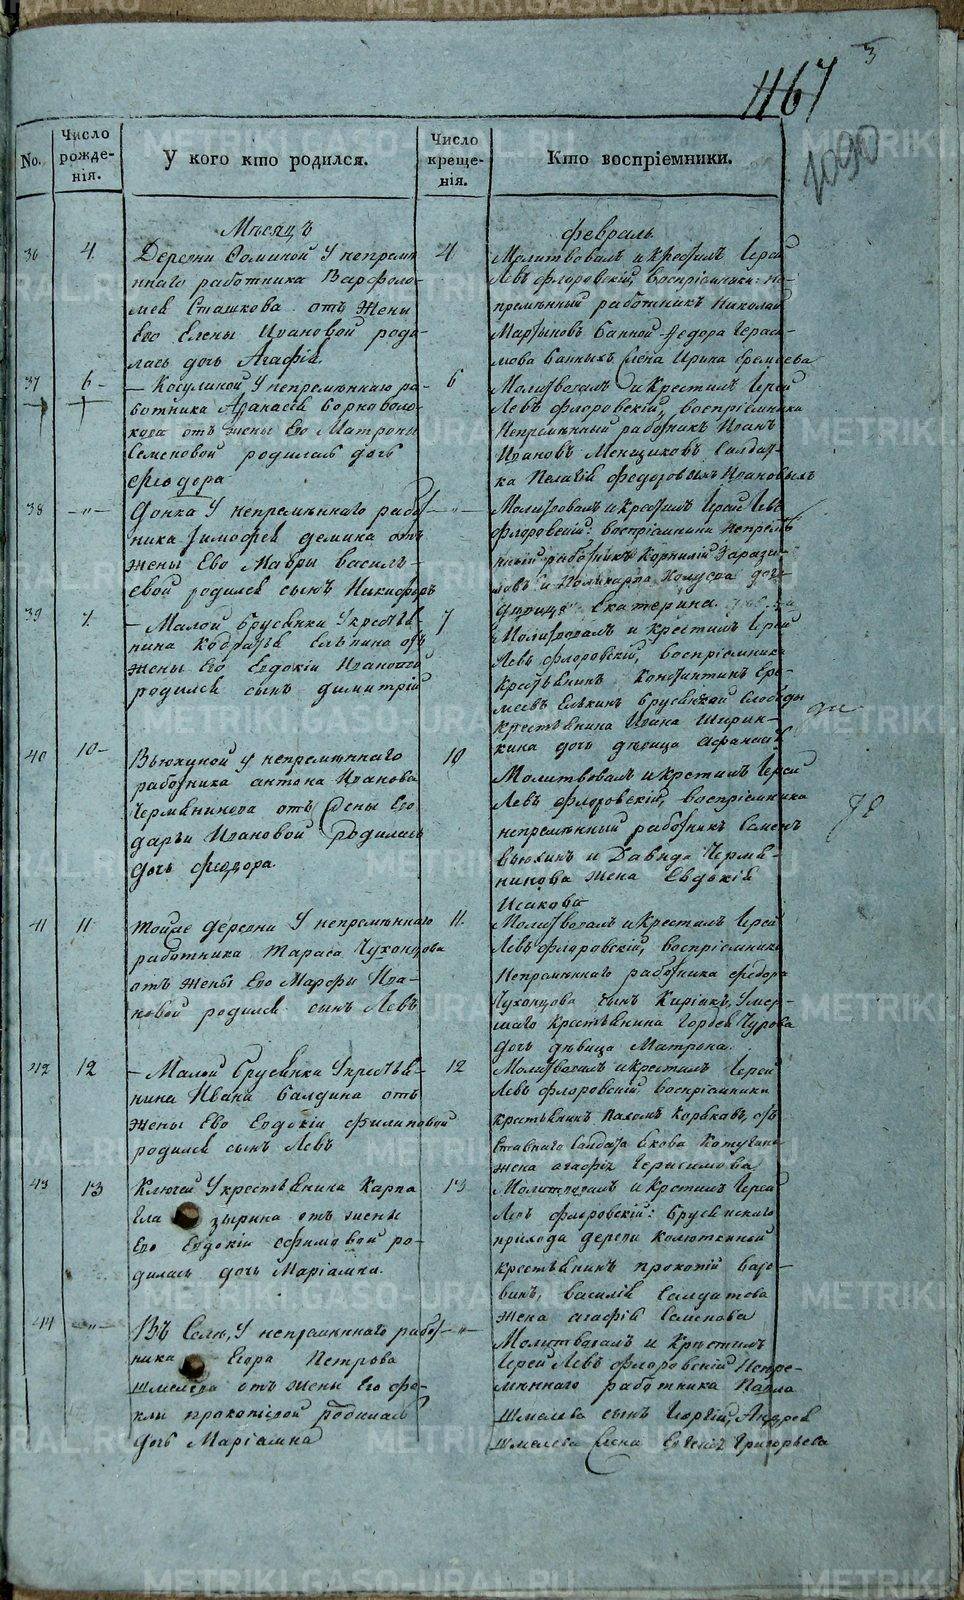 3
1167
1090
No.
Число рожде-нія.
У кого кто родился.
Число креще-нія.
Кто воспріемники.
Мѣсяцъ
февраль
36 4
Деревни Фоминой у непремѣ
ннаго работника Варфоло-
мея Сташкова отъ жены
Его Елены Ивановой роди-
лась дочь Агафія
4
Молитвовалъ и крестилъ Іерей
Левъ флоровскій, воспріемники: не-
премѣнный работникъ Николай
Мартыновъ Федора Гераси-
мова жена Ирина Еремеева
37 6
– Косулиной у непремѣннаго ра-
ботника Афанасія
отъ жены Его Матроны
Семеновой родилась дочь
феодора
6
Молитвовалъ и крестилъ Іерей
Левъ флоровскій, воспріемники
Непремѣнный работникъ Иванъ
Ивановъ Менщиковъ Салдат-
ка Пелагія
38 –„–
у непремѣннаго работ
ника Тимофея демина отъ
жены Его Мавры василь-
евой родился сынъ Никифоръ
–„–
Молитвовалъ и крестилъ Іерей Левъ
флоровскій: воспріемники непремѣ
нный работникъ Корнилій
дѣвица Екатерина
39 7
– Малой брусянки у крестья-
нина Елькина отъ
жены Его Евдокіи Ивановой
родился сынъ димитрій
7
Молитвовалъ и крестилъ Іерей
Левъ флоровскій, воспріемники
крестьянинъ Константинъ Ере-
меевъ Елькинъ брусянской слободы
крестьянина Ивана Ширин-
кина дочь дѣвица Афанасія
40 10 –
Вьюхиной у непремѣннаго
работника антона Иванова
Чермянинова отъ жены Его
дарьи Ивановой родилась
дочь феодора.
10
Молитвовалъ и крестилъ Іерей
Левъ флоровскій, воспріемники
непремѣнный работникъ Семенъ
вьюхинъ и Давида Чермя-
нинова жена Евдокія
Исакова
41 11
Тойже деревни у непремѣннаго
работника Тараса Чухонцова
отъ жены Его Марфы Ива-
новой родился сынъ Левъ
11.
Молитвовалъ и крестилъ Іерей
Левъ флоровскій, воспріемники
Непремѣннаго работника федора
Чухонцова сынъ Киріакъ, Умер-
шаго крестьянина Гордея Чурова
дочь дѣвица Матрона.
42 12
– Малой брусянки у крестья-
нина Ивана балдина отъ
жены Его Евдокіи филиповой
родился сынъ Левъ
12
Молитвовалъ и крестилъ Іерей
Левъ флоровскій воспріемники
крестьянинъ Пахомъ Коряковъ, от-
ставнаго салдата Якова
жена агафія Герасимова
43 13
Ключей у крестьянина Карпа
Гла зырина отъ жены
Его Евдокіи Ефимовой ро-
дилась дочь Маріамна.
13
Молитвовалъ и крестилъ Іерей
Левъ флоровскій: брусянскаго
прихода дерени Колюткиной
крестьянинъ прокопій
василія Салдатова
жена агафія Семенова
44 –„–
Въ Селѣ, у непремѣннаго работ
ника Егора Петрова
Шмелева отъ жены Его фе-
клы прокопіевой родилась
дочь Маріамна
–„–
Молитвовалъ и Крестилъ
Іерей Левъ флоровскій Непре-
мѣннаго работника Павла
Шмелева сынъ Георгій, Андрея
Шмелева жена Евгенія Григорьева
METRIKI.GASO-URAL.RU